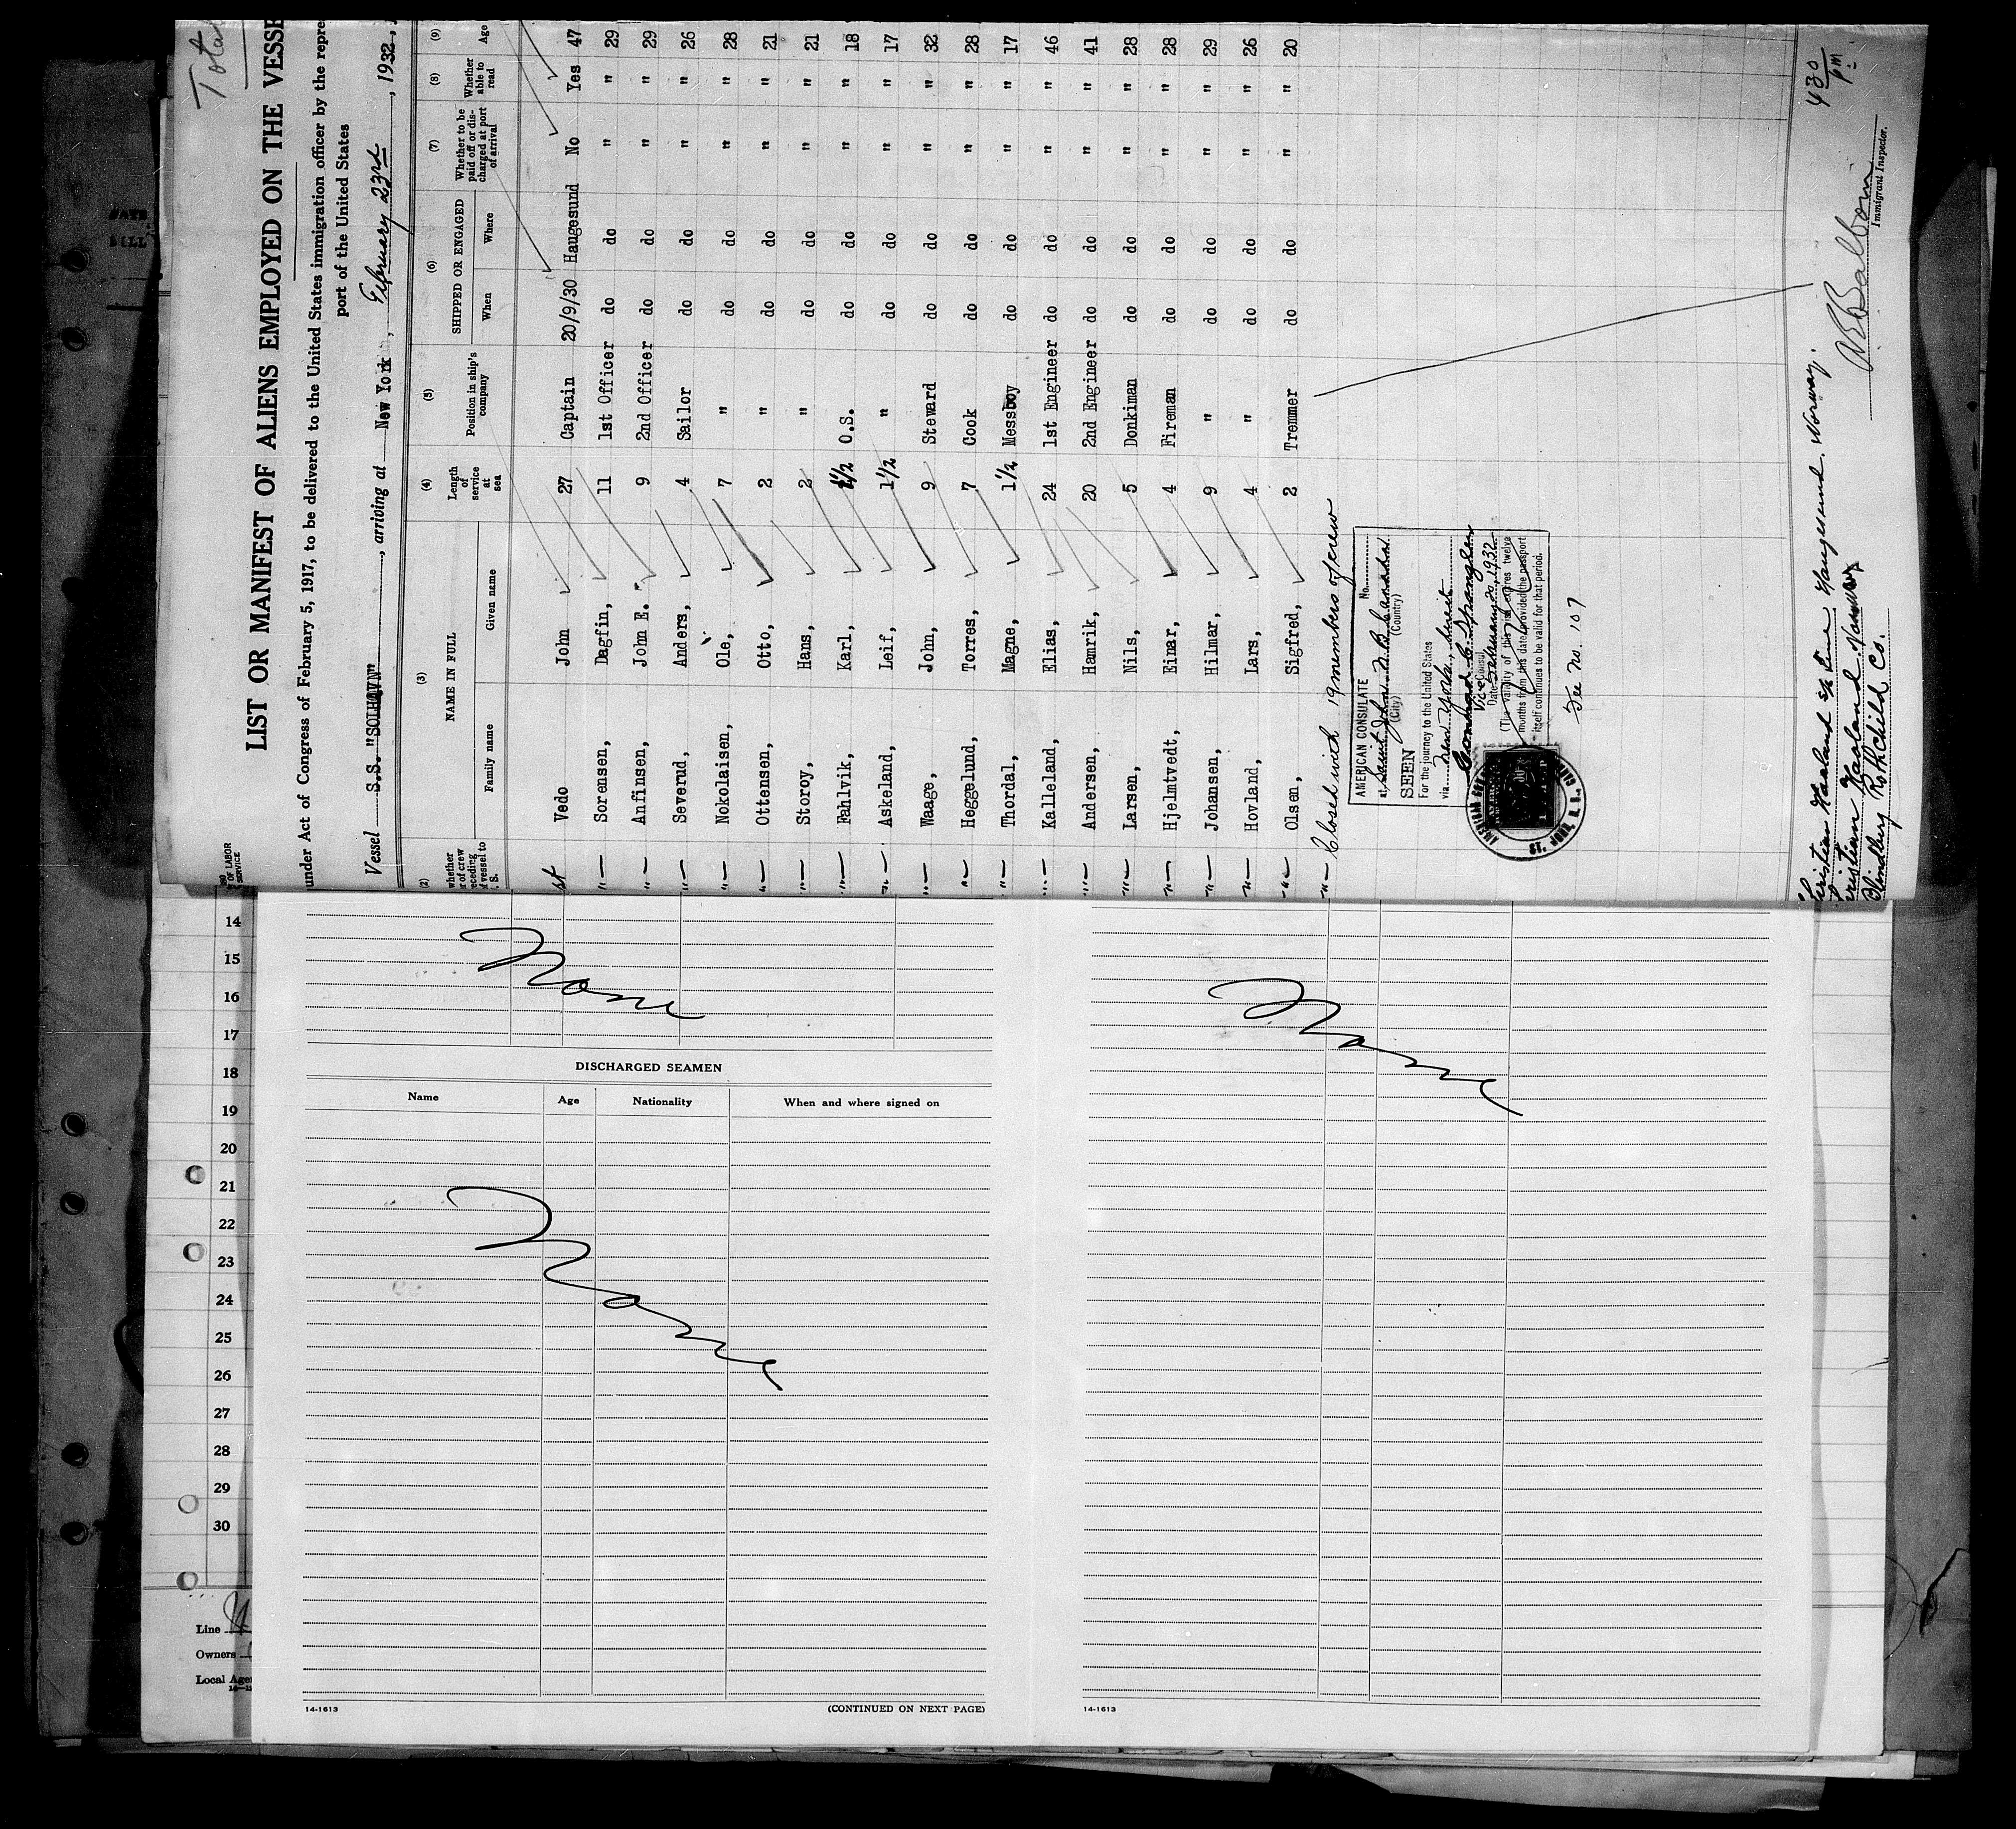 Total
LIST OR MANIFEST OF ALIENS EMPLOYED ON THE VESSE
under Act of Congress of February 5, 1917, to be delivered to the United States immigration officer by the repre
port of the United States
Vessel S.S. "SOLHAVN", arriving at New York, February 23rd, 1932,
(2) (3) (4) (5) (6) (7) (8) (9)
NAME IN FULL Length of service at sea Position in ship's company SHIPPED OR ENGAGED Whether to be paid off or discharged at port of arrival Whether able to read Age
Family name Given name When Where
Vedo John 27 Captain 20/9/30 Haugesund No Yes 47
"— Sorensen, Dagfin, 11 1st Officer do do " " 29
"— Anfinsen, John E. 9 2nd Officer do do " " 29
"— Severud, Anders, 4 Sailor do do " " 26
"— Nokolaisen, Ole, 7 " do do " " 28
"— Ottensen, Otto, 2 " do do " " 21
"— Storoy, Hans, 2 " do do " " 21
"— Fahlvik, Karl, 1½ O.S. do do " " 18
"— Askeland, Leif, 1½ " do do " " 17
"— Waage, John, 9 Steward do do " " 32
"— Heggelund, Torres, 7 Cook do do " " 28
"— Thordal, Magne, 1½ Messboy do do " " 17
"— Kalleland, Elias, 24 1st Engineer do do " " 46
"— Andersen, Hamrik, 20 2nd Engineer do do " " 41
"— Larsen, Nils, 5 Donkiman do do " " 28
"— Hjelmtvedt, Einar, 4 Fireman do do " " 28
"— Johansen, Hilmar, 9 " do do " " 29
"— Hovland, Lars, 4 " do do " " 26
"— Olsen, Sigfred, 2 Tremmer do do " " 20
"— Closed with 19 members of crew
AMERICAN CONSULATE No.
at Saint John N.B. Canada
(City) (Country)
SEEN
For the journey to the United States
via New York, direct
Vice Consul
Date February 20, 1932
(The validity of this visa expires twelve
months from this date provided the passport
itself continues to be valid for that period.
See No. 107
Christian Haaland S/S Line Haugesund. Norway.
Christian Haaland. Norway
Rothchild Co.
430 pm
Immigrant Inspector.
14
15
16
17
18
19
20
21
22
23
24
25
26
27
28
29
30
Line
Owners
Local Age
None
DISCHARGED SEAMEN
Name Age Nationality When and where signed on
None
14-1613 (CONTINUED ON NEXT PAGE)
None
14-1613